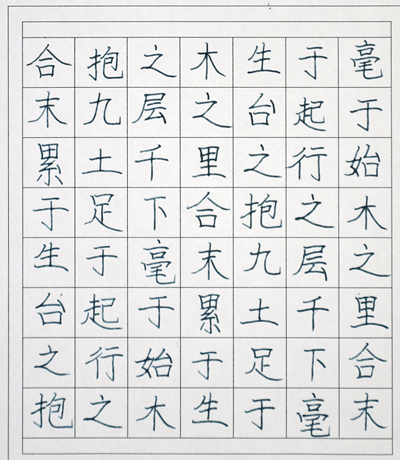 合抱之木生于毫
末九层之台起于
累土千里之行始
于足下合抱之木
生于毫末九层之
台起于累土千里
之行始于足下合
抱之木生于毫末